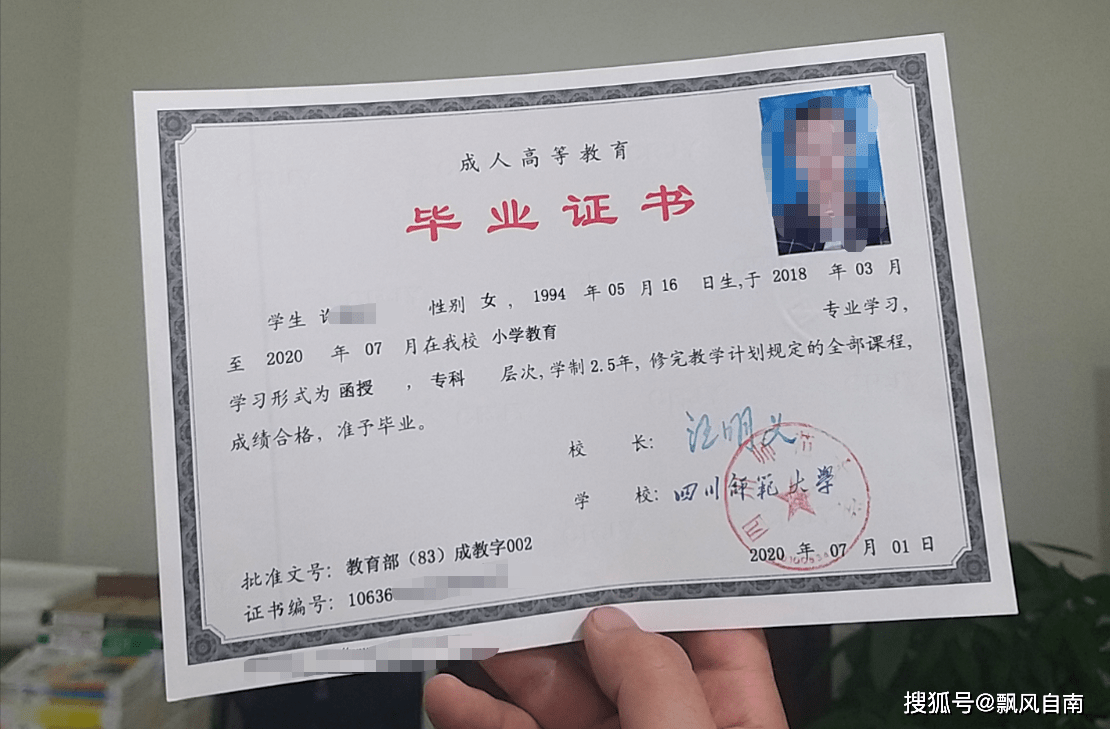 成人高等教育
毕业证书
学生 许 性别 女，1994 年 05 月 16 日生,于 2018 年 03 月
至 2020 年 07 月在我校 小学教育 专业学习，
学习形式为 函授 ，专科 层次, 学制 2.5年, 修完教学计划规定的全部课程,
成绩合格，准予毕业。
校 长: 汪明义
学 校: 四川师范大学
2020 年 07 月 01 日
批准文号: 教育部（83）成教字002
证书编号: 10636
搜狐号@飘风自南